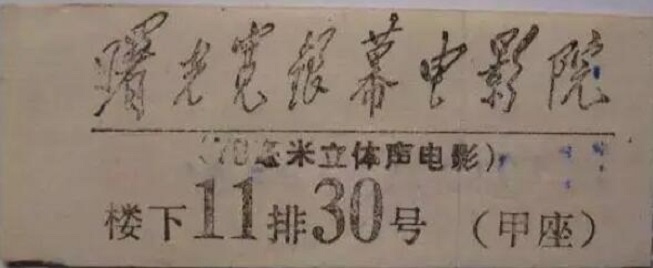 曙光宽银幕电影院
(70毫米立体声电影)
楼下11排30号 (甲座)